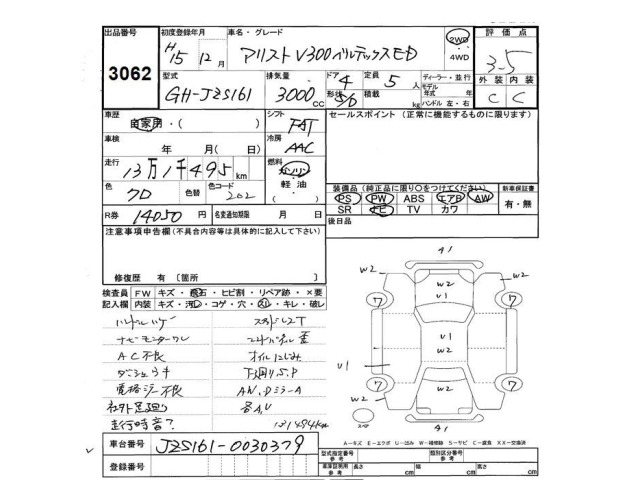 出品番号 初度登録年月 車名・グレード 評価点
3062 H15年12月 アリスト V300ベルテックスED 2WD 4WD 3-5
型式 排気量 ドア 4 定員 5人 ディーラー・並行 外装 内装
GH-JZS161 3000cc 形状 S/D 積載 kg モデル年式 年 ハンドル 左・右 C C
車歴 自家用・( ) シフト FAT セールスポイント(正常に機能するものに限ります)
車検 年 月(日) 冷房 AAC
走行 13万1千495km 燃料 ガソリン 軽油 ( )
色 色替 色コード 202 装備品(純正品に限り○をつけてください) 新車保証書
PS PW ABS エアB AW 有・無
R券 14050円 名変通知期限 月 日 SR ナビ TV カワ
注意事項申告欄(不具合内容等は具体的に記入して下さい) 後日品
修復歴 有 〔箇所 〕
検査員記入欄 FW キズ・飛石・ヒビ割・リペア跡・×要
内装 キズ・汚レ・コゲ・穴・スレ・キレ・破レ
ハンドルハゲ
ナビモニターワレ
AC不良 オイルにじみ
電格ミラー不良 AW、Dミラー A
社外足廻り 各A,U
走行時音? 131494km
41
W2 W2
W2
ワ ワ
V1
W2
V1
ワ ワ
W2
W2 W2
41
車台番号 JZS161-0030379
A-キズ E-エクボ U-凹み W-補修跡 S-サビ C-腐食 XX-交換済
登録番号 型式指定番号 参考 類別区分番号 参考
車庫証明用 参考 長さ cm 幅 cm 高さ cm